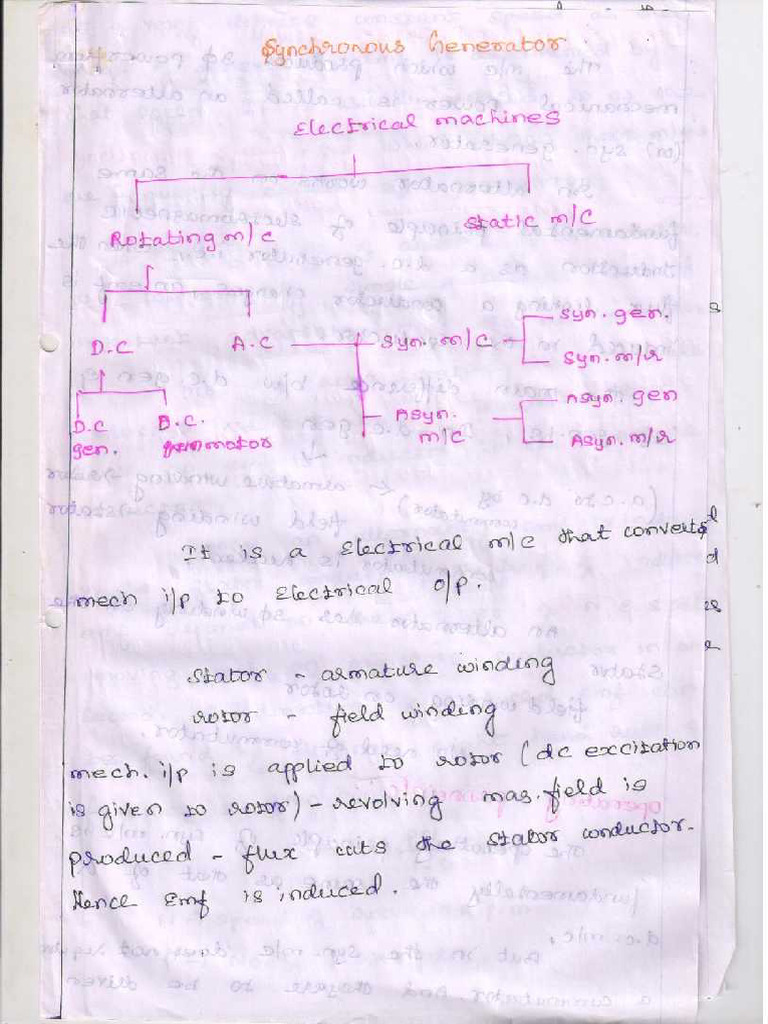 Synchronous Generator
Electrical machines
Rotating m/c
Static m/c
D.C
A.C
Syn. m/c
Syn. gen.
Syn. m/r
Asyn. m/c
Asyn. gen
Asyn. m/r
D.C gen.
D.C. motor
It is a Electrical m/c that converts
mech i/p to Electrical o/p.
Stator - armature winding
rotor - field winding
mech. i/p is applied to rotor (dc excitation
is given to rotor) - revolving mag. field is
produced - flux cuts the stator conductor.
Hence Emf is induced.